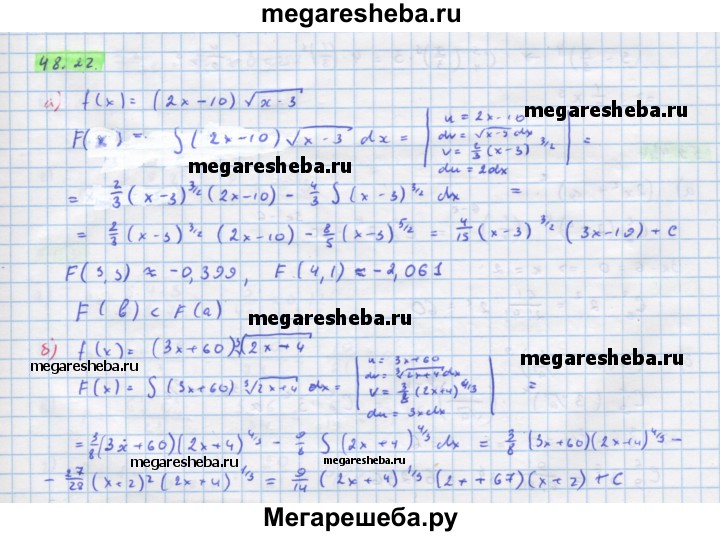 megaresheba.ru
48.22.
а) f(x) = (2x-10) √(x-3)
F(x) = ∫(2x-10)√(x-3) dx = | u = 2x-10
dv = √(x-3) dx
v = 2/3 (x-3)^3/2
du = 2dx | =
megaresheba.ru
megaresheba.ru
= 2/3 (x-3)^3/2 (2x-10) - 4/3 ∫(x-3)^3/2 dx =
= 2/3 (x-3)^3/2 (2x-10) - 8/15 (x-3)^5/2 = 4/15 (x-3)^3/2 (3x-19) + C
F(3,3) ≈ -0,399, F(4,1) ≈ -2,061
F(b) < F(a)
megaresheba.ru
б) f(x) = (3x+60) ∛(2x+4)
megaresheba.ru
megaresheba.ru
F(x) = ∫(3x+60) ∛(2x+4) dx = | u = 3x+60
dv = ∛(2x+4) dx
v = 3/8 (2x+4)^4/3
du = 3xdx | =
= 3/8 (3x+60)(2x+4)^4/3 - 9/8 ∫(2x+4)^4/3 dx = 3/8 (3x+60)(2x+4)^4/3 -
megaresheba.ru
megaresheba.ru
- 27/28 (x+2)² (2x+4)^1/3 = 9/14 (2x+4)^1/3 (2++67)(x+2) + C
Мегарешеба.ру